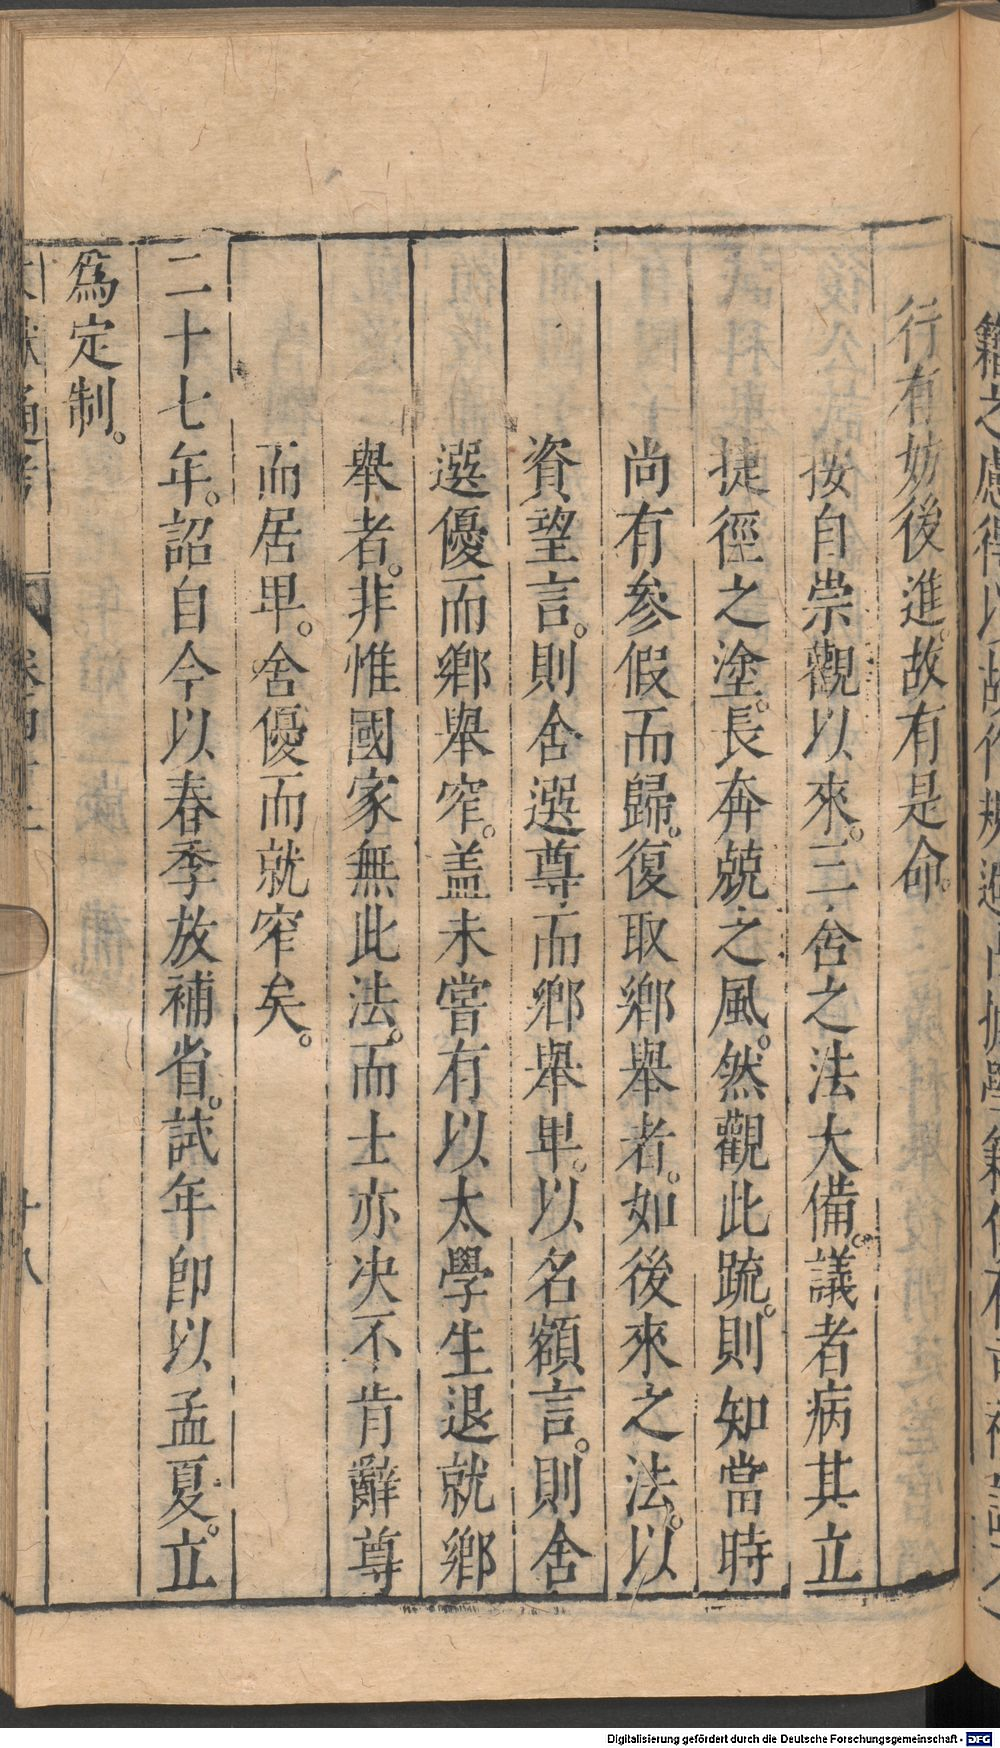 行有妨後進。故有是命。
按自崇觀以來。三舍之法大備。議者病其立
捷徑之塗。長奔兢之風。然觀此疏。則知當時
尚有參假而歸。復取鄉舉者。如後來之法。以
資望言。則舍選尊而鄉舉卑。以名額言。則舍
選優而鄉舉窄。盖未嘗有以太學生退就鄉
舉者。非惟國家無此法。而士亦決不肯辭尊
而居卑。舍優而就窄矣。
二十七年。詔自今以春季放補省。試年即以孟夏。立
爲定制。
通考 卷四十二 十八
Digitalisierung gefördert durch die Deutsche Forschungsgemeinschaft - DFG